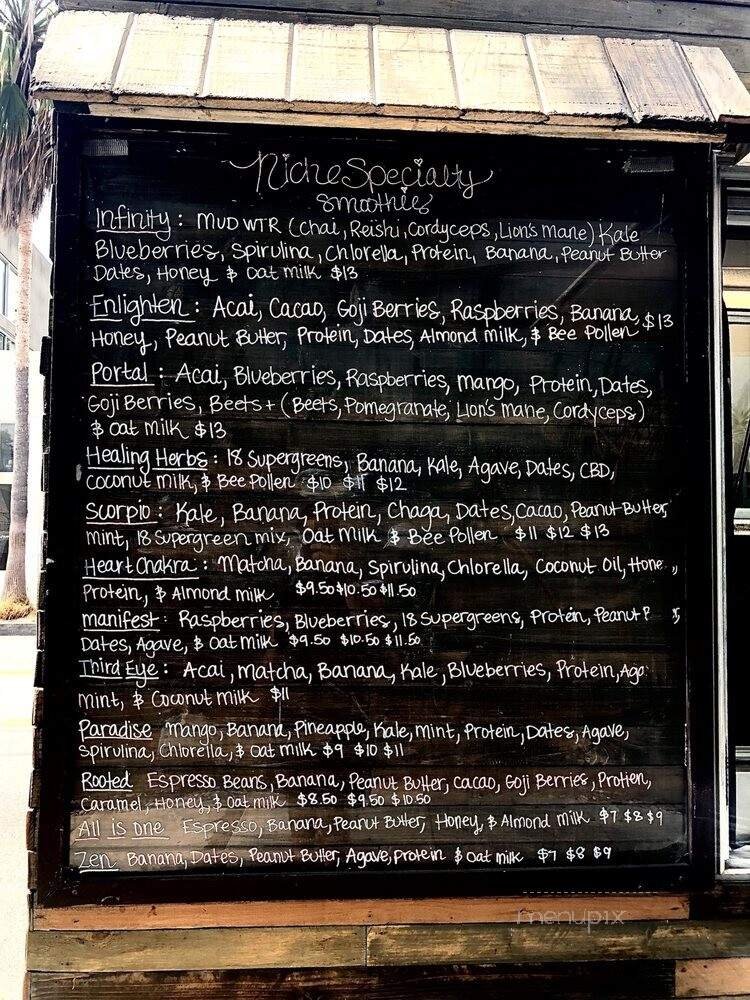 Niche Specialty
Smoothies
Infinity : MUD WTR (chai, Reishi, Cordyceps, Lion's mane) Kale
Blueberries, Spirulina, Chlorella, Protein, Banana, Peanut Butter
Dates, Honey & Oat milk $13
Enlighten : Acai, Cacao, Goji Berries, Raspberries, Banana, $13
Honey, Peanut Butter, Protein, Dates, Almond milk, & Bee Pollen
Portal : Acai, Blueberries, Raspberries, mango, Protein, Dates,
Goji Berries, Beets+ (Beets, Pomegranate, Lion's mane, Cordyceps)
& Oat milk $13
Healing Herbs : 18 Supergreens, Banana, Kale, Agave, Dates, CBD,
Coconut milk, & Bee Pollen $10 $11 $12
Scorpio : Kale, Banana, Protein, Chaga, Dates, Cacao, Peanut Butter,
mint, 18 Supergreen mix, Oat milk & Bee Pollen $11 $12 $13
Heart Chakra : Matcha, Banana, Spirulina, Chlorella, Coconut Oil, Hone ,
Protein, & Almond milk $9.50 $10.50 $11.50
manifest : Raspberries, Blueberries, 18 Supergreens, Protein, Peanut
Dates, Agave, & Oat milk $9.50 $10.50 $11.50
Third Eye : Acai, matcha, Banana, Kale, Blueberries, Protein, Aga
mint, & Coconut milk $11
Paradise mango, Banana, Pineapple, Kale, mint, Protein, Dates, Agave,
Spirulina, Chlorella, & Oat milk $9 $10 $11
Rooted Espresso Beans, Banana, Peanut Butter, Cacao, Goji Berries, Protien,
Caramel, Honey, & Oat milk $8.50 $9.50 $10.50
All is one Espresso, Banana, Peanut Butter, Honey, & Almond milk $7 $8 $9
Zen Banana, Dates, Peanut Butter, Agave, protein & Oat milk $7 $8 $9
menupix